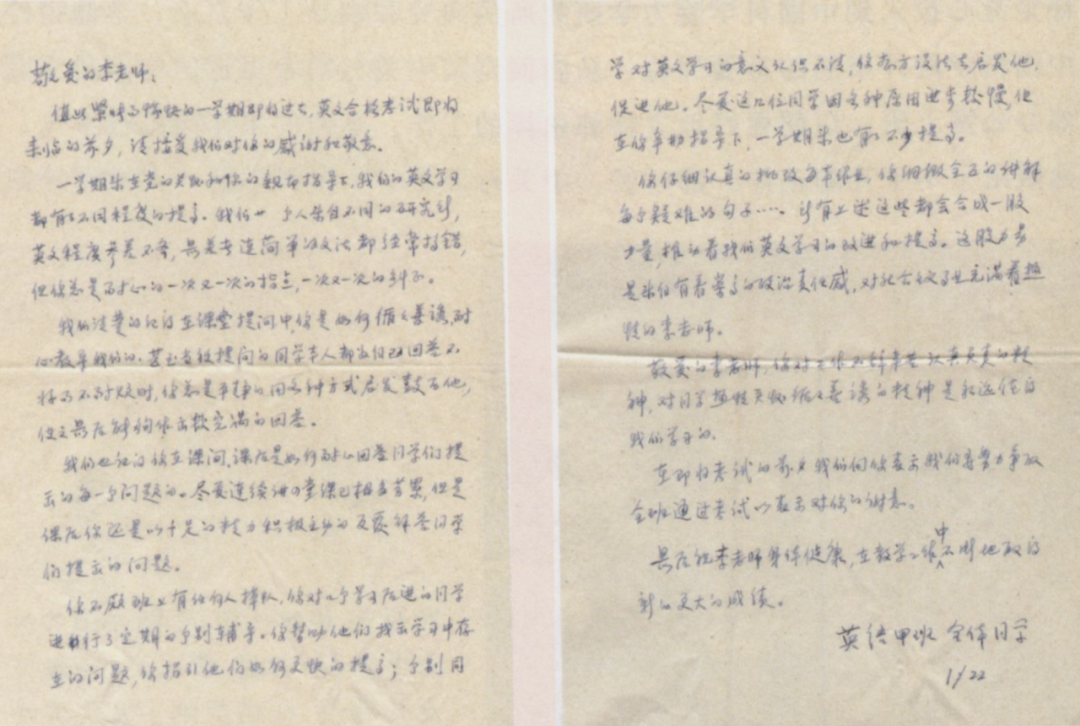 敬爱的李老师：
值此紧张而愉快的一学期即将过去，英文合格考试即将
来临的前夕，请接受我们对您的感谢和敬意。
一学期来在党的关怀和您的亲自指导下，我们的英文学习
都有了不同程度的提高。我们廿 个人来自不同的研究所，
英文程度参差不齐，甚至连简单的文法都经常搞错，
但您总是耐心的一次又一次的指点，一次又一次的纠正。
我们清楚的记得在课堂提问中您是如何循循善诱，耐
心教导我们的。甚至当被提问的同学本人都为自己回答不
好而不耐烦时，您总是平静的用各种方式启发鼓励他，
使之最后能够作出较完满的回答。
我们也记得您在课间、课后是如何耐心回答同学们提
出的每一个问题的。尽管连续讲几堂课已相当劳累，但是
课后你还是以十足的精力积极主动的反复解答同学
们提出的问题。
您不愿班上有任何人掉队，您对几个学习后进的同学
进行了定期的个别辅导。您帮助他们找出学习中存
在的问题，您指引他们如何更快的提高；个别同
学对英文学习的意义认识不清，您想方设法去启发他，
促进他。尽管这几位同学因各种原因进步较慢，但
在您辛勤指导下，一学期来也有不少提高。
您仔细认真的批改每本作业，您细微全面的讲解
每个疑难的句子……所有上述这些都会合成一股
力量，推动着我们英文学习的改进和提高。这股力量
是来自有着崇高的政治责任感，对社会教育充满着热
情的李老师。
敬爱的李老师，您对工作不辞辛劳认真负责的精
神，对同学热情关怀循循善诱的精神是永远值得
我们学习的。
在即将考试的前夕我们向您表示我们将努力争取
全班通过考试以表示对您的谢意。
最后祝李老师身体健康，在教学工作中不断地取得
新的更大的成绩。
英语甲班 全体同学
1/22